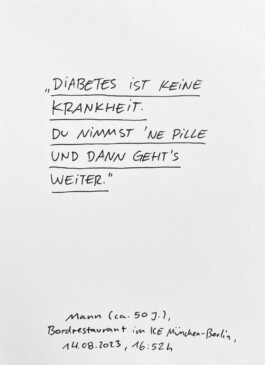 „DIABETES IST KEINE
KRANKHEIT.
DU NIMMST 'NE PILLE
UND DANN GEHT'S
WEITER."
Mann (ca. 50 J.),
Bordrestaurant im ICE München-Berlin,
14.08.2023, 16:52h